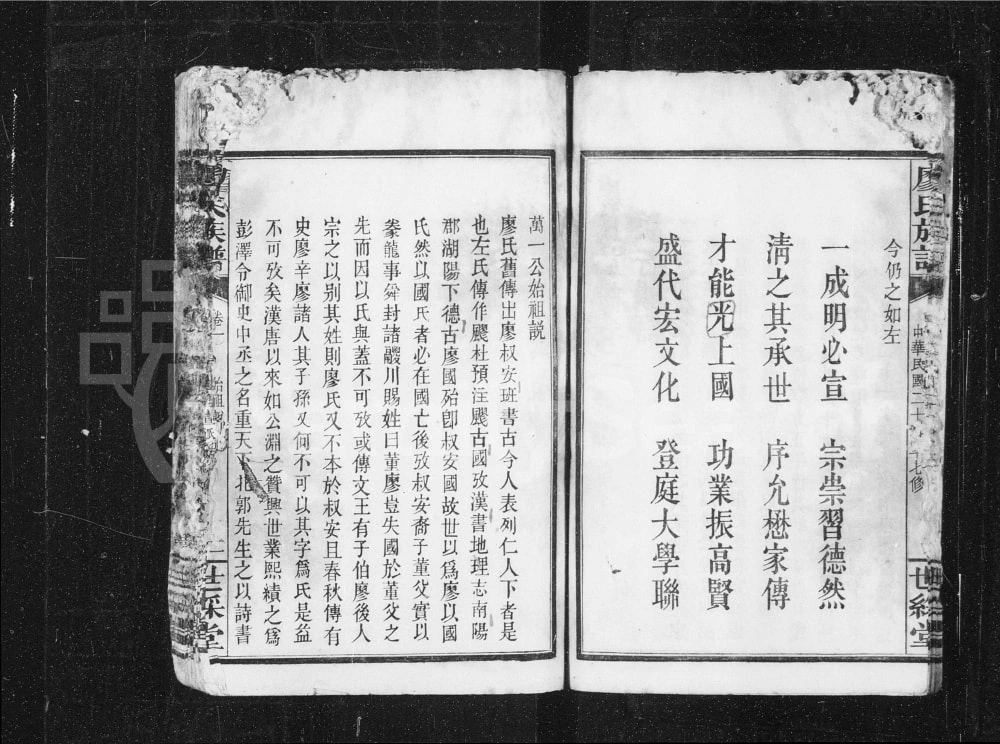 廖氏族譜
中華民國二十
七修
世綵堂
今仍之如左
一成明必宣　宗崇習德然
淸之其承世　序允懋家傳
才能光上國　功業振高賢
盛代宏文化　登庭大學聯
萬一公始祖説
廖氏舊傳出廖叔安班書古今人表列仁人下者是
也左氏傳作飂杜預注飂古國攷漢書地理志南陽
郡湖陽下德古廖國殆卽叔安國故世以爲廖以國
氏然以國氏者必在國亡後攷叔安裔子董父實以
豢龍事舜封諸鬷川賜姓曰董廖豈失國於董父之
先而因以氏與蓋不可攷或傳文王有子伯廖後人
宗之以别其姓則廖氏又不本於叔安且春秋傳有
史廖辛廖諸人其子孫又何不可以其字爲氏是益
不可攷矣漢唐以來如公淵之贊興世業熙績之爲
彭澤令御史中丞之名重天下北郭先生之以詩書
氏族譜
卷一
始祖説
二
世綵堂